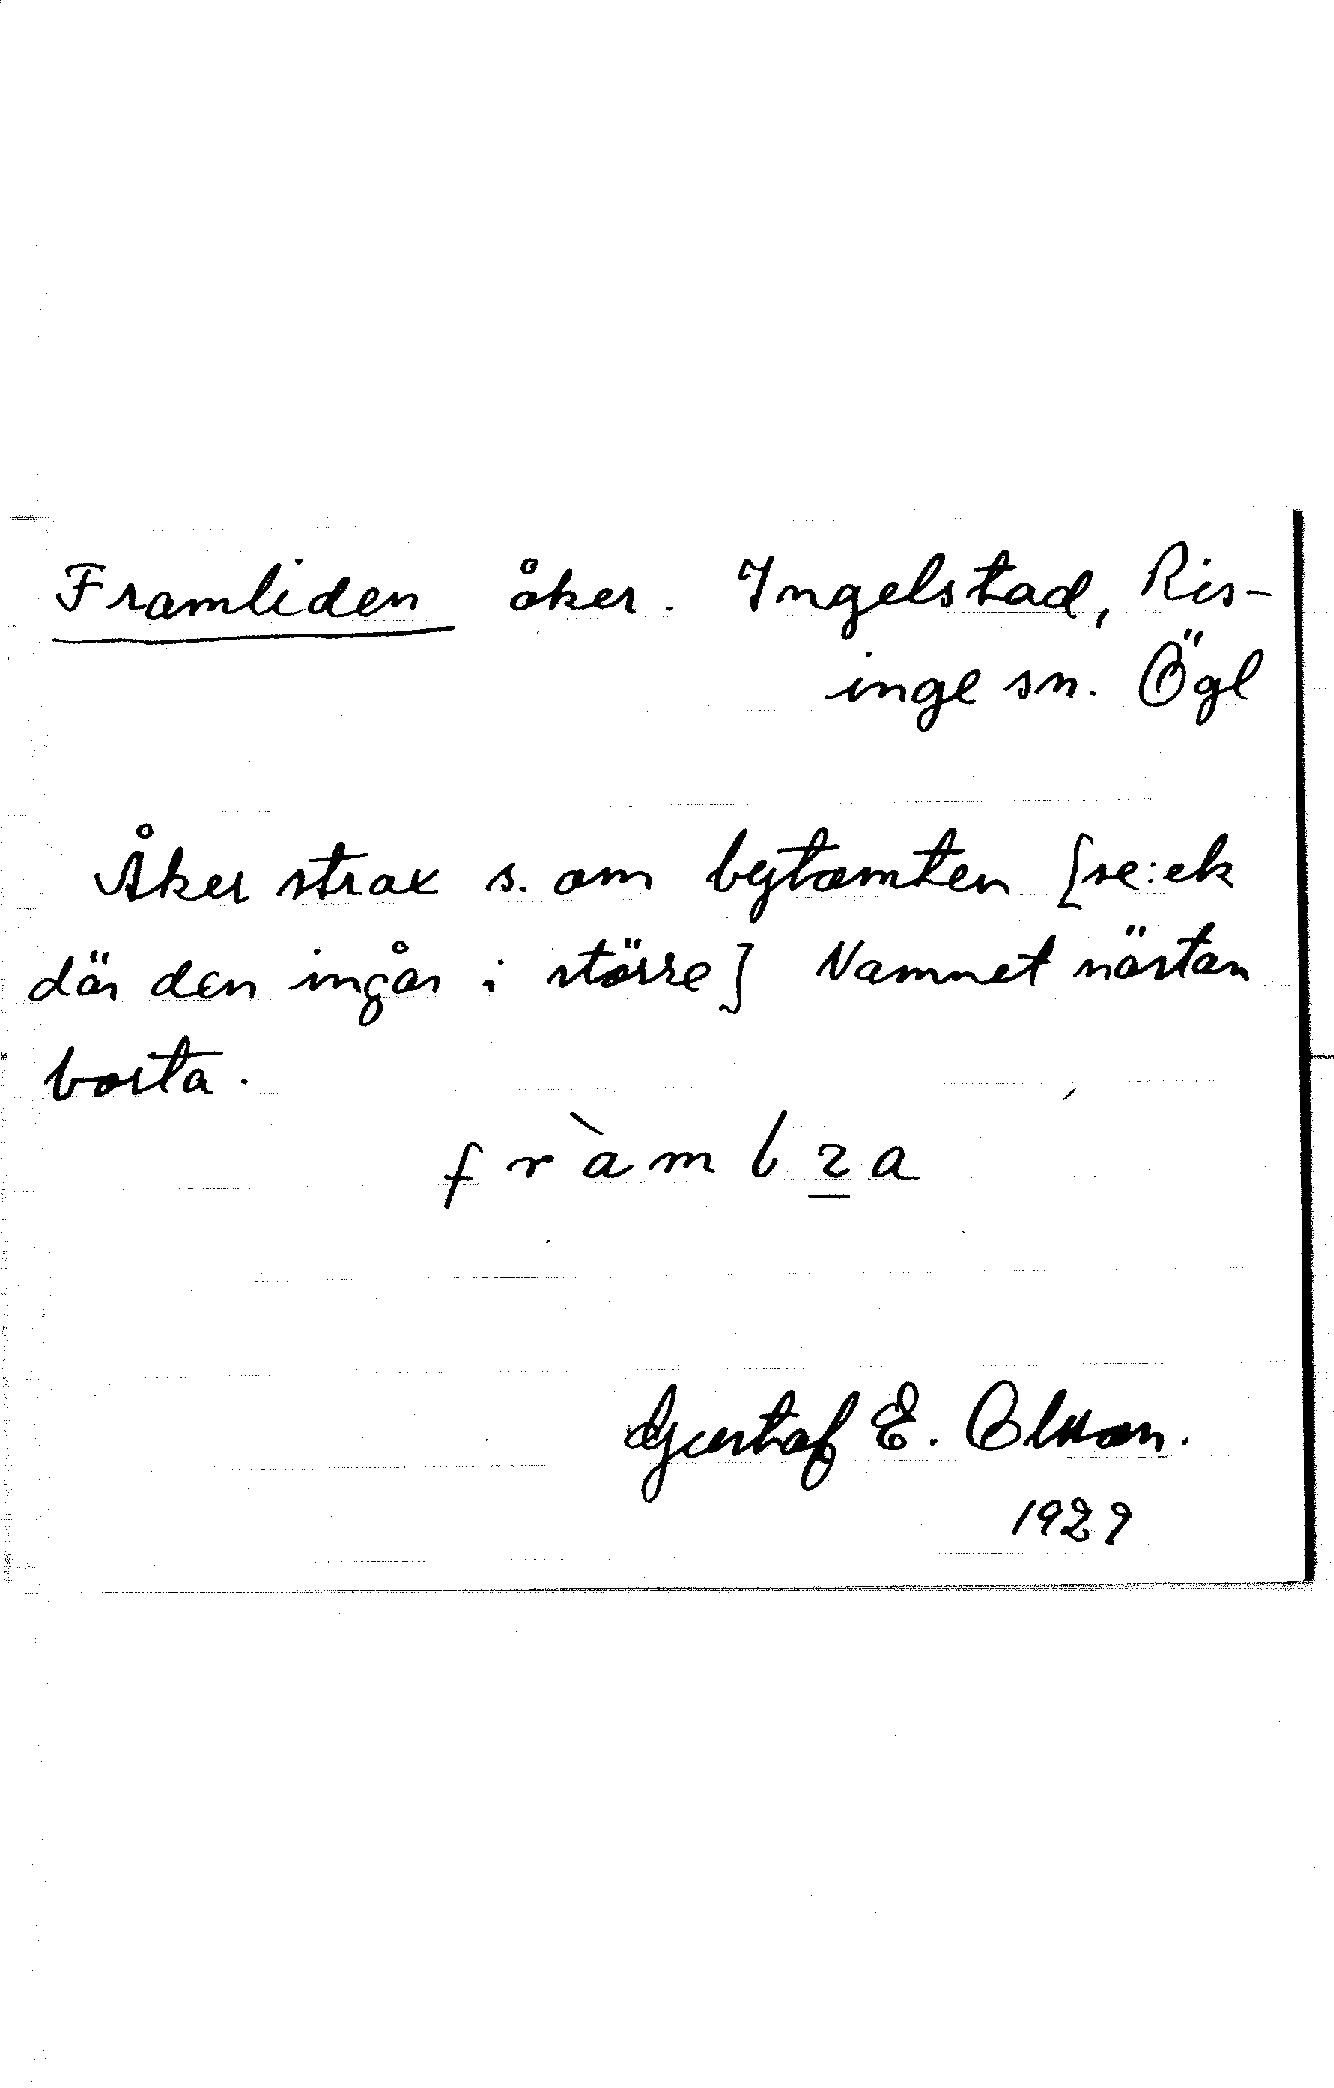 Framliden åker. Ingelstad, Ris-
inge sn. Ögl
Åker strax s. om bytomten [se: ek
där den ingår i större] Namnet nästan
borta.
fràmlıa
Gustaf E. Olsson.
1929